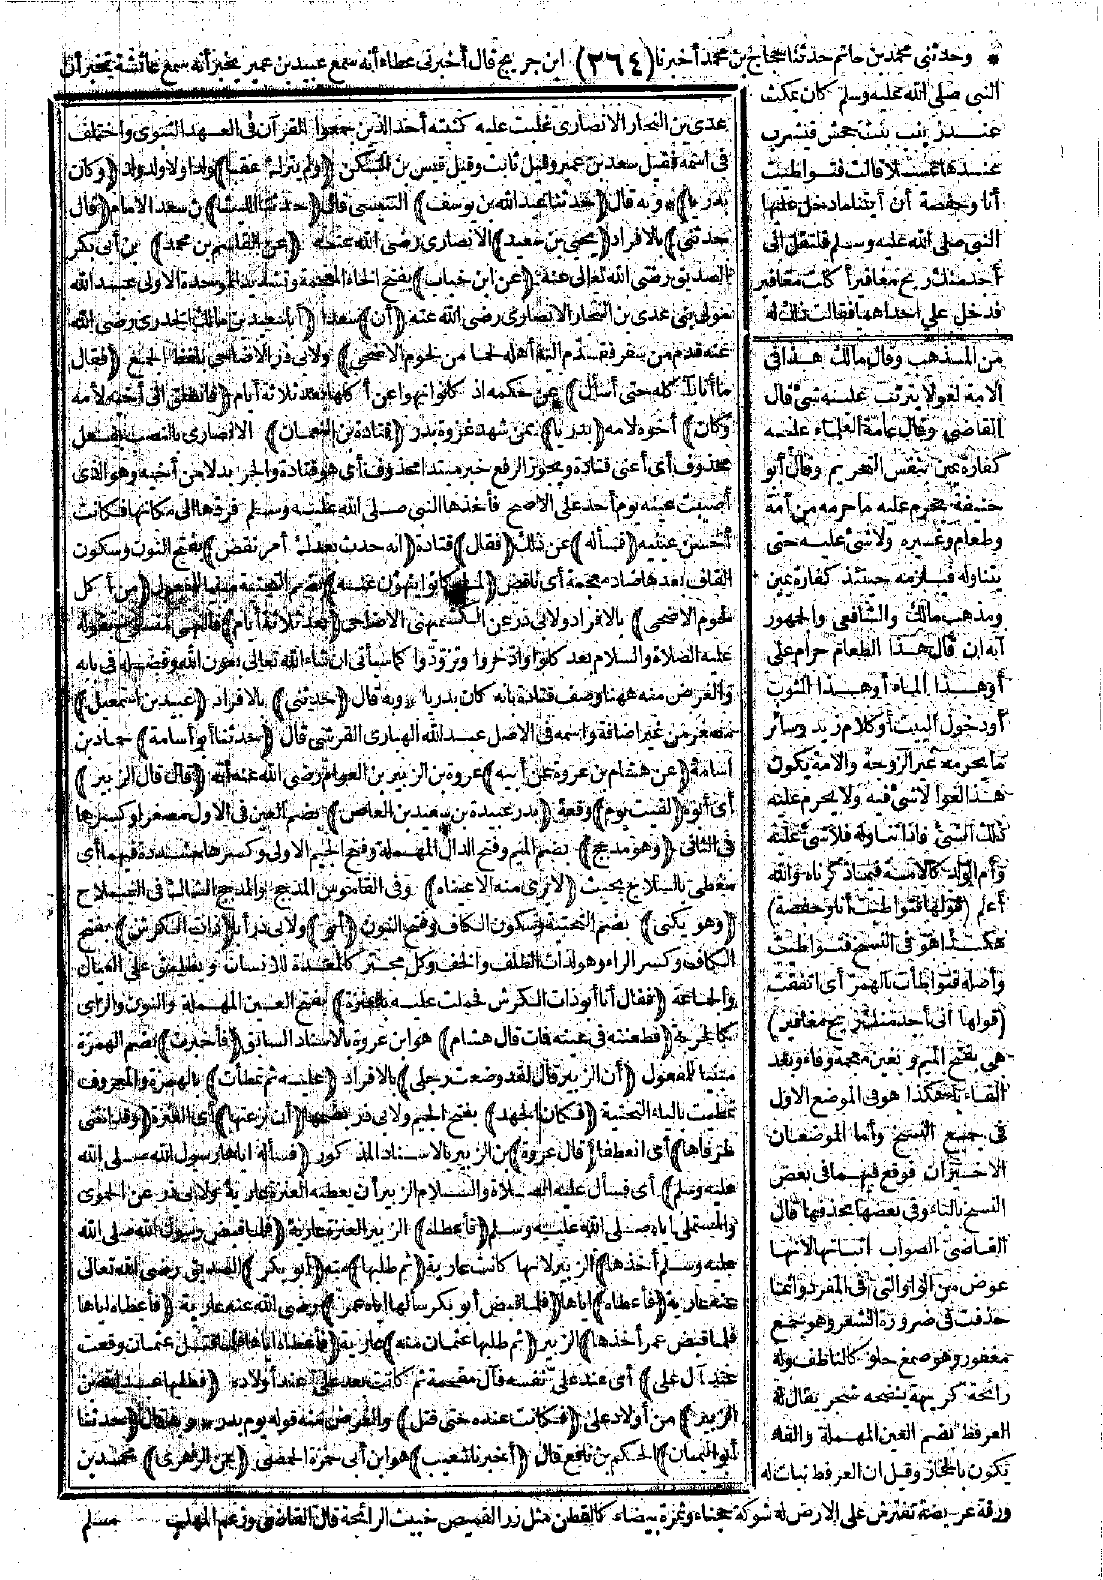 * وحدثني محمد بن حاتم حدثنا حجاج بن محمد أخبرنا (٢٦٤) ابن جريج قال أخبرني عطاء أنه سمع عبيد بن عمير يخبر أنه سمع عائشة تخبر أن
النبي صلى الله عليه وسلم كان يمكث
عند زينب بنت جحش فيشرب
عندها عسلا قالت فتواطيت
أنا وحفصة أن أيتنا ما دخل عليها
النبي صلى الله عليه وسلم فلتقل إني
أجد منك ريح مغافير أكلت مغافير
فدخل على إحداهما فقالت ذلك له
من المذهب وقال مالك هذا في
الأمة لغو لا يترتب عليه شيء قال
القاضي وقال عامة العلماء عليه
كفارة يمين بنفس التحريم وقال أبو
حنيفة يحرم عليه ما حرمه من أمة
وطعام وغيره ولا شيء عليه حتى
يتناوله فيلزمه حينئذ كفارة يمين
ومذهب مالك والشافعي والجمهور
أنه إن قال هذا الطعام حرام علي
أو هذا الماء أو هذا الثوب
أو دخول البيت أو كلام زيد وسائر
ما يحرمه غير الزوجة والأمة يكون
هذا لغوا لا شيء فيه ولا يحرم عليه
ذلك الشيء فإذا تناوله فلا شيء عليه
وأم الولد كالأمة فيما ذكرناه والله
أعلم (قولها فتواطيت أنا وحفصة)
هكذا هو في النسخ فتواطيت
وأصله فتواطأت بالهمز أي اتفقت
(قولها إني أجد منك ريح مغافير)
هي بفتح الميم وبغين معجمة وفاء وبعد
الفاء ياء هكذا هو في الموضع الأول
في جميع النسخ وأما الموضعان
الأخيران فوقع فيهما في بعض
النسخ بالياء وفي بعضها بحذفها قال
القاضي الصواب إثباتها لأنها
عوض من الواو التي في المفرد وإنما
حذفت في ضرورة الشعر وهو جمع
مغفور وهو صمغ حلو كالناطف وله
رائحة كريهة ينضحه شجر يقال له
العرفط بضم العين المهملة والفاء
يكون بالحجاز وقيل إن العرفط نبات له
عدي بن النجار الأنصاري غلبت عليه كنيته أحد الذين جمعوا القرآن في العهد النبوي واختلف
في اسمه فقيل سعد بن عمير وقيل ثابت وقيل قيس بن السكن (ولم يترك عقبا) ولدا ولا ولد ولد (وكان
بدريا) * وبه قال (حدثنا عبد الله بن يوسف) التنيسي قال (حدثنا الليث) بن سعد الإمام (قال
حدثني) بالإفراد (يحيى بن سعيد) الأنصاري رضي الله عنه (عن القاسم بن محمد) بن أبي بكر
الصديق رضي الله تعالى عنه (عن ابن خباب) بفتح الخاء المعجمة وتشديد الموحدة الأولى عبد الله
مولى بني عدي بن النجار الأنصاري رضي الله عنه (أن) سعدا (أبا سعيد بن مالك الخدري رضي الله
عنه قدم من سفر فقدم إليه أهله لحما من لحوم الأضحى) ولأبي ذر الأضاحي بلفظ الجمع (فقال
ما أنا بآكله حتى أسأل) عن حكمه إذ كانوا نهوا عن أكلها بعد ثلاثة أيام (فانطلق إلى أخيه لأمه
وكان) أخوه لأمه (بدريا) ممن شهد غزوة بدر (قتادة بن النعمان) الأنصاري بالنصب بفعل
محذوف أي أعني قتادة ويجوز الرفع خبر مبتدأ محذوف أي هو قتادة والجر بدلا من أخيه وهو الذي
أصيبت عينه يوم أحد على الأصح فأخذها النبي صلى الله عليه وسلم فردها إلى مكانها فكانت
أحسن عينيه (فسأله) عن ذلك (فقال) قتادة (إنه حدث بعدك أمر نقض) بفتح النون وسكون
القاف بعدها ضاد معجمة أي ناقض (لما كانوا ينهون عنه) بضم التحتية مبنيا للمفعول (من أكل
لحوم الأضحى) بالإفراد ولأبي ذر عن الكشميهني الأضاحي (بعد ثلاثة أيام) فالنهي منسوخ بقوله
عليه الصلاة والسلام بعد كلوا وادخروا وتزودوا كما سيأتي إن شاء الله تعالى بعون الله وفضله في بابه
والغرض منه ههنا وصف قتادة بأنه كان بدريا * وبه قال (حدثني) بالإفراد (عبيد بن إسمعيل)
مصغر من غير إضافة واسمه في الأصل عبد الله الهباري القرشي قال (حدثنا أبو أسامة) حماد بن
أسامة (عن هشام بن عروة عن أبيه) عروة بن الزبير بن العوام رضي الله عنه أنه (قال قال الزبير)
أي أبوه (لقيت يوم) وقعة (بدر عبيدة بن سعيد بن العاص) بضم العين في الأول مصغرا وكسرها
في الثاني (وهو مدجج) بضم الميم وفتح الدال المهملة وفتح الجيم الأولى وكسرها مشددة فيهما أي
مغطى بالسلاح بحيث (لا يرى منه إلا عيناه) وفي القاموس المدجج والمدجج الشاك في السلاح
(وهو يكنى) بضم التحتية وسكون الكاف وفتح النون (أبو) ولأبي ذر أبا (ذات الكرش) بفتح
الكاف وكسر الراء وهو لذات الظلف والخف وكل مجتر كالمعدة للإنسان ويطلق على العيال
والجماعة (فقال أنا أبو ذات الكرش فحملت عليه بالعنزة) بفتح العين المهملة والنون والزاي
كالحربة (فطعنته في عينه فمات قال هشام) هو ابن عروة بالإسناد السابق (فأخبرت) بضم الهمزة
مبنيا للمفعول (أن الزبير قال لقد وضعت رجلي) بالإفراد (عليه ثم تمطأت) بالهمزة والمعروف
تمطيت بالياء التحتية (فكان الجهد) بفتح الجيم ولأبي ذر بضمها (أن نزعتها) أي العنزة (وقد انثنى
طرفاها) أي انعطفا (قال عروة) بن الزبير بالإسناد المذكور (فسأله إياها رسول الله صلى الله
عليه وسلم) أي فسأل عليه الصلاة والسلام الزبير أن يعطيه العنزة عارية ولأبي ذر عن الحموي
والمستملي إياه صلى الله عليه وسلم (فأعطاه) الزبير العنزة عارية (فلما قبض رسول الله صلى الله
عليه وسلم أخذها) الزبير لأنها كانت عارية (ثم طلبها) منه (أبو بكر) الصديق رضي الله تعالى
عنه عارية (فأعطاه) إياها (فلما قبض أبو بكر سألها إياه عمر) رضي الله عنه عارية (فأعطاه إياها
فلما قبض عمر أخذها) الزبير (ثم طلبها عثمان منه) عارية (فأعطاه إياها فلما قتل عثمان وقعت
عند آل علي) أي عند علي نفسه فآل مقحمة ثم كانت بعد علي عند أولاده (فطلبها عبد الله بن
الزبير) من أولاد علي (فكانت عنده حتى قتل) والغرض منه قوله يوم بدر * وبه قال (حدثنا
أبو اليمان) الحكم بن نافع قال (أخبرنا شعيب) هو ابن أبي حمزة الحمصي (عن الزهري) محمد بن
ورقة عريضة تفترش على الأرض له شوكة حجناء وثمرة بيضاء كالقطن مثل زر القميص خبيث الرائحة قال القاضي وزعم المهلب
مسلم